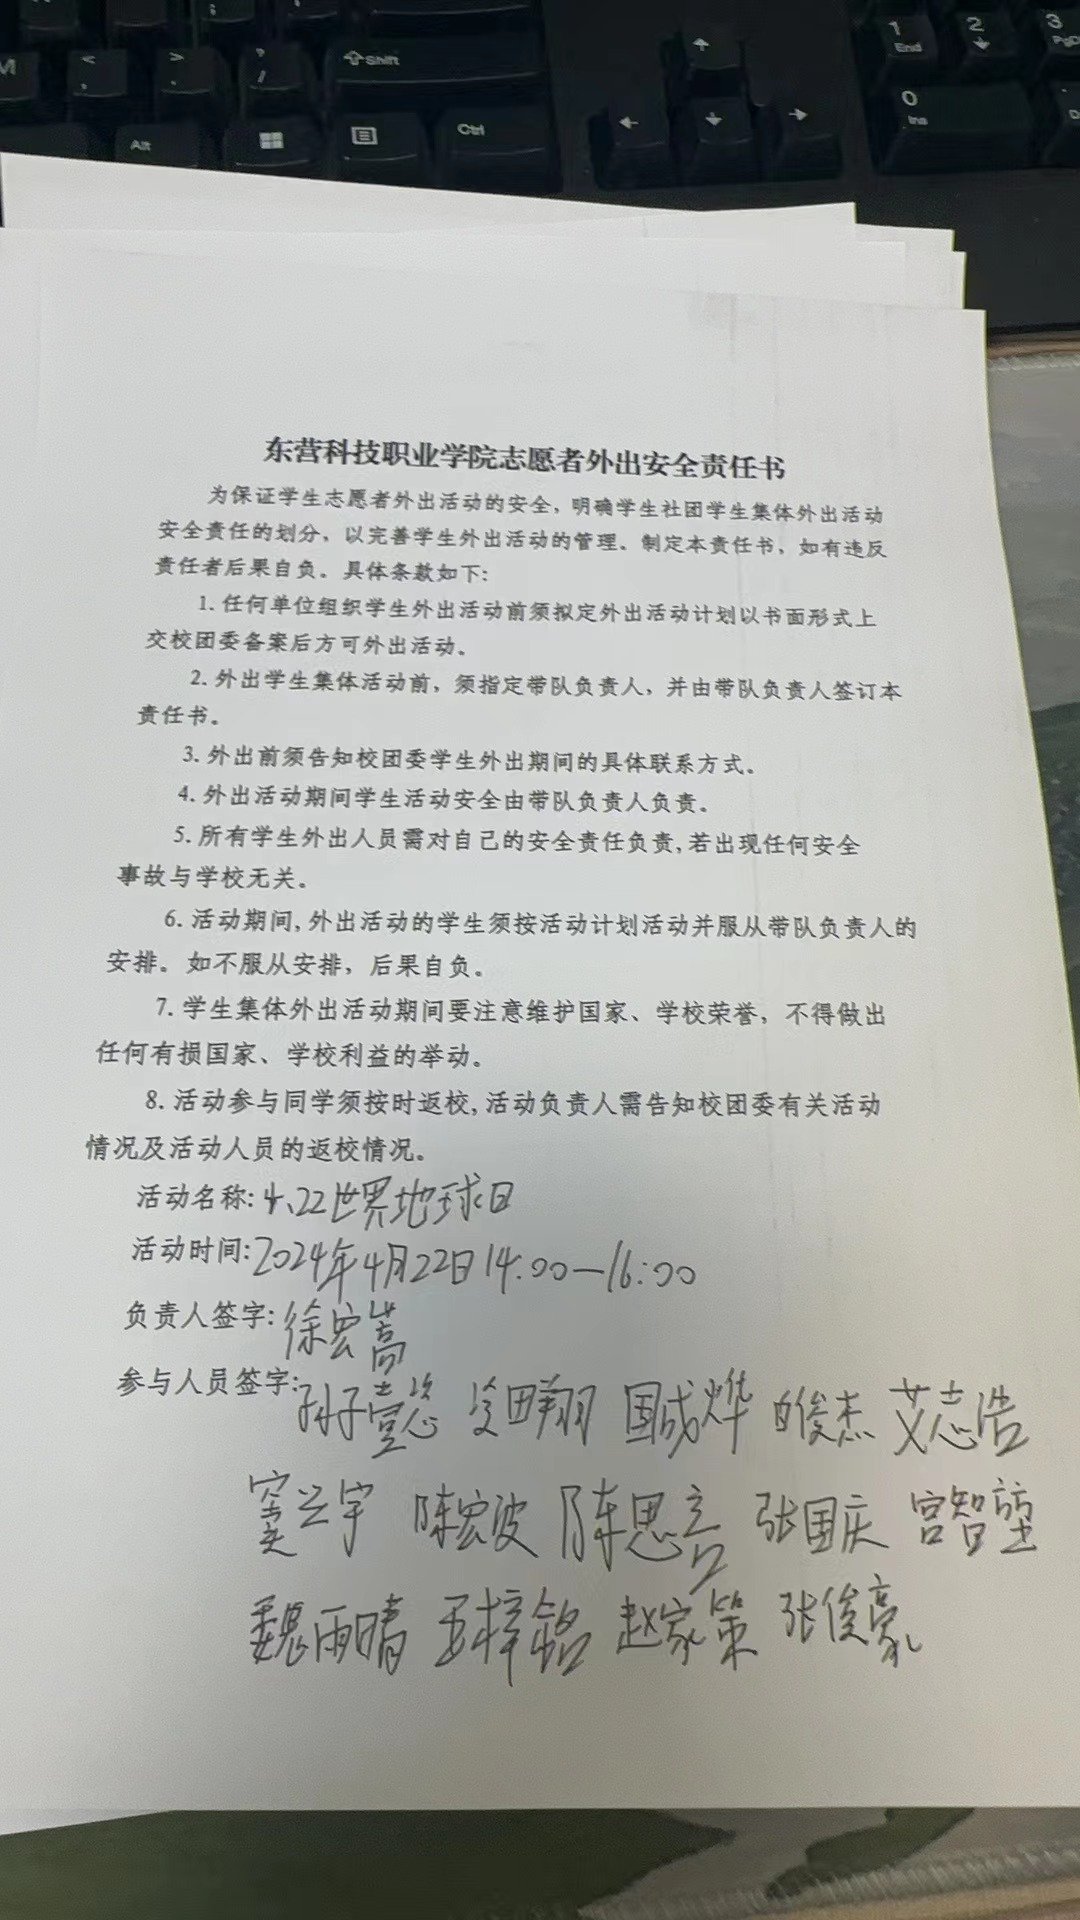 M < , > . ? / ⇧Shift Alt Ctrl
↑ ← ↓ →
1 End 2 ↓ 3 PgD
0 Ins
东营科技职业学院志愿者外出安全责任书
为保证学生志愿者外出活动的安全，明确学生社团学生集体外出活动
安全责任的划分，以完善学生外出活动的管理、制定本责任书，如有违反
责任者后果自负。具体条款如下：
1. 任何单位组织学生外出活动前须拟定外出活动计划以书面形式上
交校团委备案后方可外出活动。
2. 外出学生集体活动前，须指定带队负责人，并由带队负责人签订本
责任书。
3. 外出前须告知校团委学生外出期间的具体联系方式。
4. 外出活动期间学生活动安全由带队负责人负责。
5. 所有学生外出人员需对自己的安全责任负责,若出现任何安全
事故与学校无关。
6. 活动期间,外出活动的学生须按活动计划活动并服从带队负责人的
安排。如不服从安排，后果自负。
7. 学生集体外出活动期间要注意维护国家、学校荣誉，不得做出
任何有损国家、学校利益的举动。
8. 活动参与同学须按时返校,活动负责人需告知校团委有关活动
情况及活动人员的返校情况。
活动名称:4.22世界地球日
活动时间:2024年4月22日14:00—16:00
负责人签字:徐宏嵩
参与人员签字:孙子 国成烨 白俊杰 艾志浩
窦兴宇 陈宏波 陈思言 张国庆 宫智堃
魏雨晴 王梓铭 赵家策 张俊豪